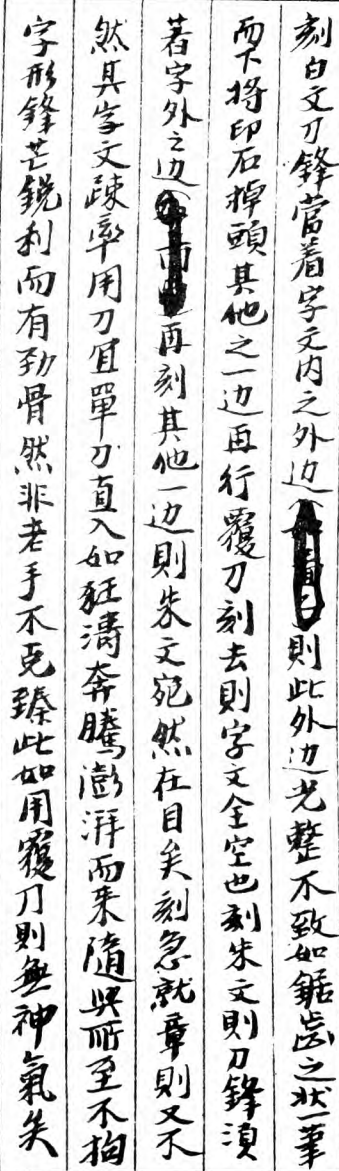 刻白文刀鋒當着字文内之外边則此外边光整不致如鋸齒之狀一筆
而下將印石掉頭其他之一边再行覆刀刻去則字文全空也刻朱文則刀鋒須
著字外之边再刻其他一边則朱文宛然在目矣刻急就章則又不
然其字文疎率用刀宜單刀直入如狂濤奔騰澎湃而來隨興所至不拘
字形鋒芒銳利而有勁骨然非老手不克臻此如用覆刀則無神氣矣